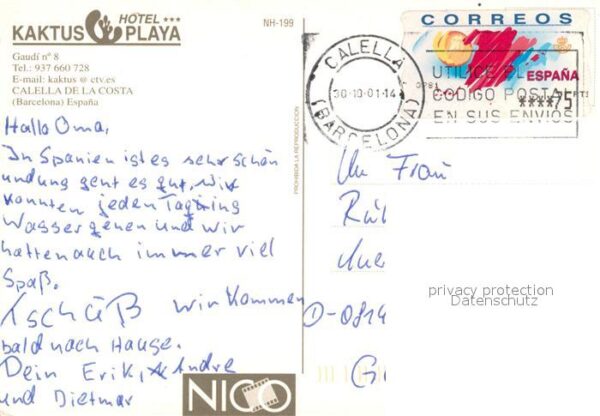 HOTEL ***
KAKTUS PLAYA
Gaudí nº 8
Tel.: 937 660 728
E-mail: kaktus @ ctv.es
CALELLA DE LA COSTA
(Barcelona) España
NH-199
PROHIBIDA LA REPRODUCCION
Hallo Oma,
In Spanien ist es sehr schön
und uns geht es gut, Wir
konnten jeden Tag ins
Wasser gehen und wir
hatten auch immer viel
Spaß.
Tschüß wir kommen
bald nach Hause.
Dein Erik, Andre
und Dietmar
NICO
CORREOS
ESPAÑA
****75 PTI
CALELLA
30-10-01-14
(BARCELONA)
UTILICE EL
CODIGO POSTAL
EN SUS ENVIOS
An Frau
D-0814
privacy protection
Datenschutz